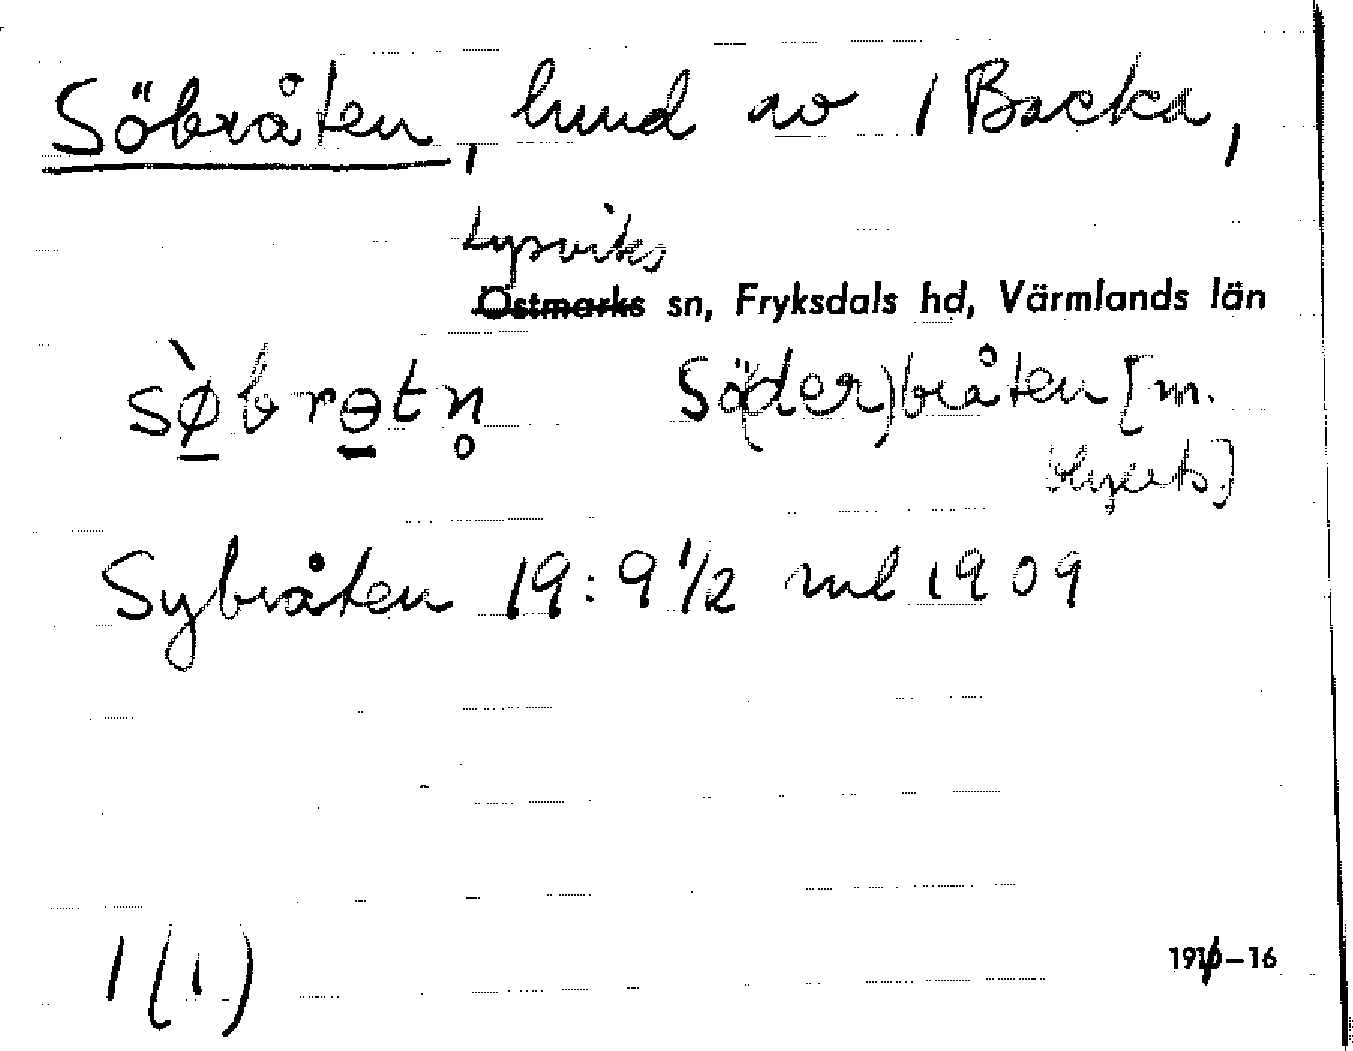 Söbråten, hmd av 1 Backa,
Lysviks
Östmarks sn, Fryksdals hd, Värmlands län
sø̀brɵtn̥ Sö(der)bråten [m.
Sybråten 19:9 1/2 ml 1909
1 (1)
191 – 16